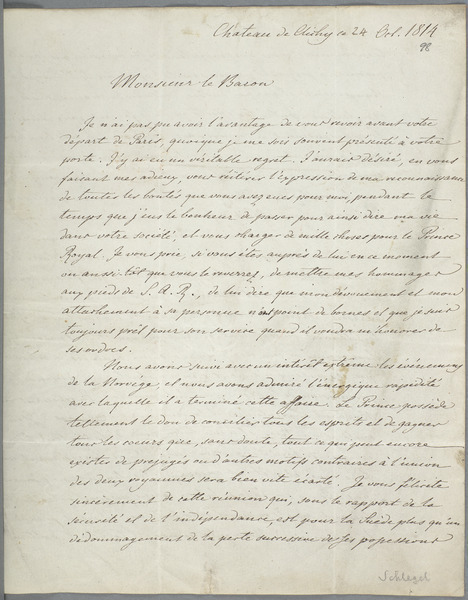 Château de Clichy ce 24 Oct. 1814
98
Monsieur le Baron
Je n'ai pas pu avoir l'avantage de vous revoir avant votre
départ de Paris, quoique je me sois souvent présenté à votre
porte. J'y ai eu un véritable regret. J'aurais désiré, en vous
faisant mes adieux, vous réitérer l'expression de ma reconnaissance
de toutes les bontés que vous avez eues pour moi, pendant le
temps que j'eus le bonheur de passer pour ainsi dire ma vie
dans votre société, et vous charger de mille choses pour le Prince
Royal. Je vous prie, si vous êtes auprès de lui en ce moment
ou aussi-tôt que vous le reverrez, de mettre mes hommages
aux pieds de S. A. R., de lui dire que mon dévouement et mon
attachement à sa personne n'ont point de bornes et que je suis
toujours prêt pour son service quand il voudra m'honorer de
ses ordres.
Nous avons suivi avec un intérêt extrême les événemens
de la Norvège, et nous avons admiré l'énergique rapidité
avec laquelle il a terminé cette affaire. Le Prince possède
tellement le don de concilier tous les esprits et de gagner
tous les cœurs que, sans doute, tout ce qui peut encore
exister de préjugés ou d'autres motifs contraires à l'union
des deux royaumes sera bien vite écarté. Je vous félicite
sincèrement de cette réunion qui, sous le rapport de la
sûreté et de l'indépendance, est pour la Suède plus qu'un
dédommagement de la perte successive de ses possessions
Schlegel